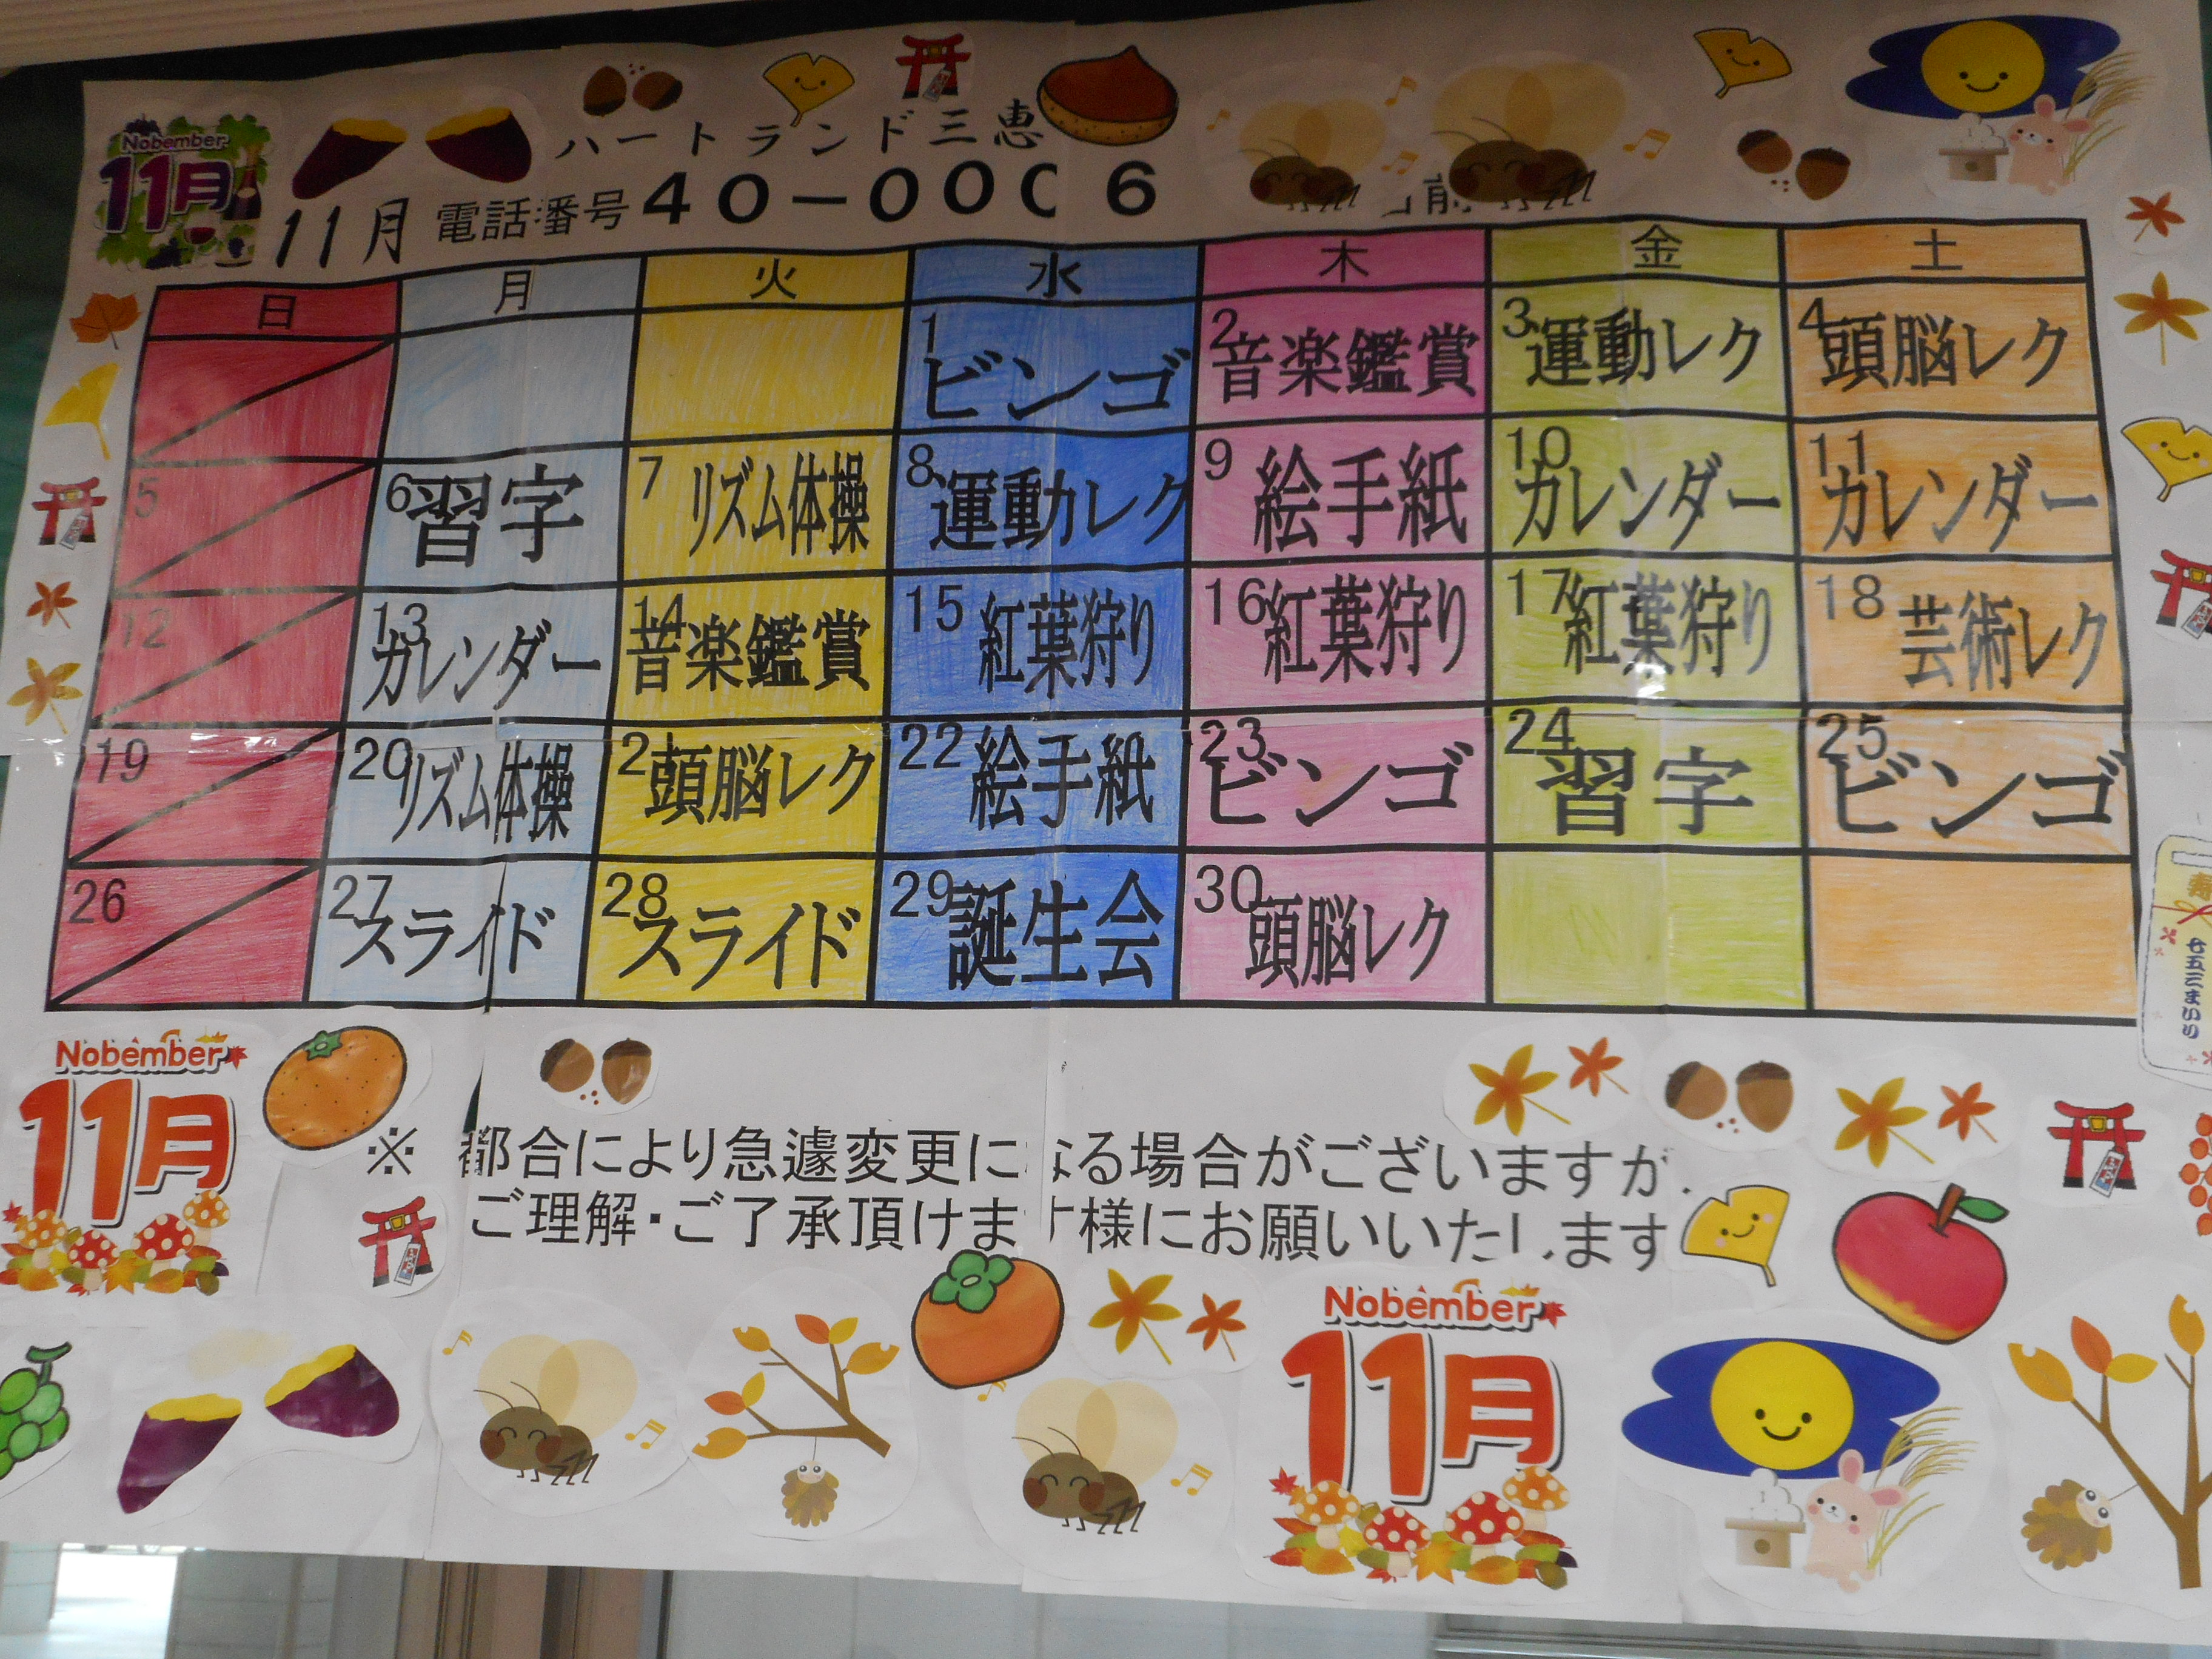 Nobember
11月
ハートランド三恵
11月 電話番号40-0006
日 月 火 水 木 金 土
1 ビンゴ 2 音楽鑑賞 3 運動レク 4 頭脳レク
5 6 習字 7 リズム体操 8 運動レク 9 絵手紙 10 カレンダー 11 カレンダー
12 13 カレンダー 14 音楽鑑賞 15 紅葉狩り 16 紅葉狩り 17 紅葉狩り 18 芸術レク
19 20 リズム体操 2 頭脳レク 22 絵手紙 23 ビンゴ 24 習字 25 ビンゴ
26 27 スライド 28 スライド 29 誕生会 30 頭脳レク
七五三まいり
Nobember
11月
※ 都合により急遽変更になる場合がございますが
ご理解・ご了承頂けます様にお願いいたします
Nobember
11月